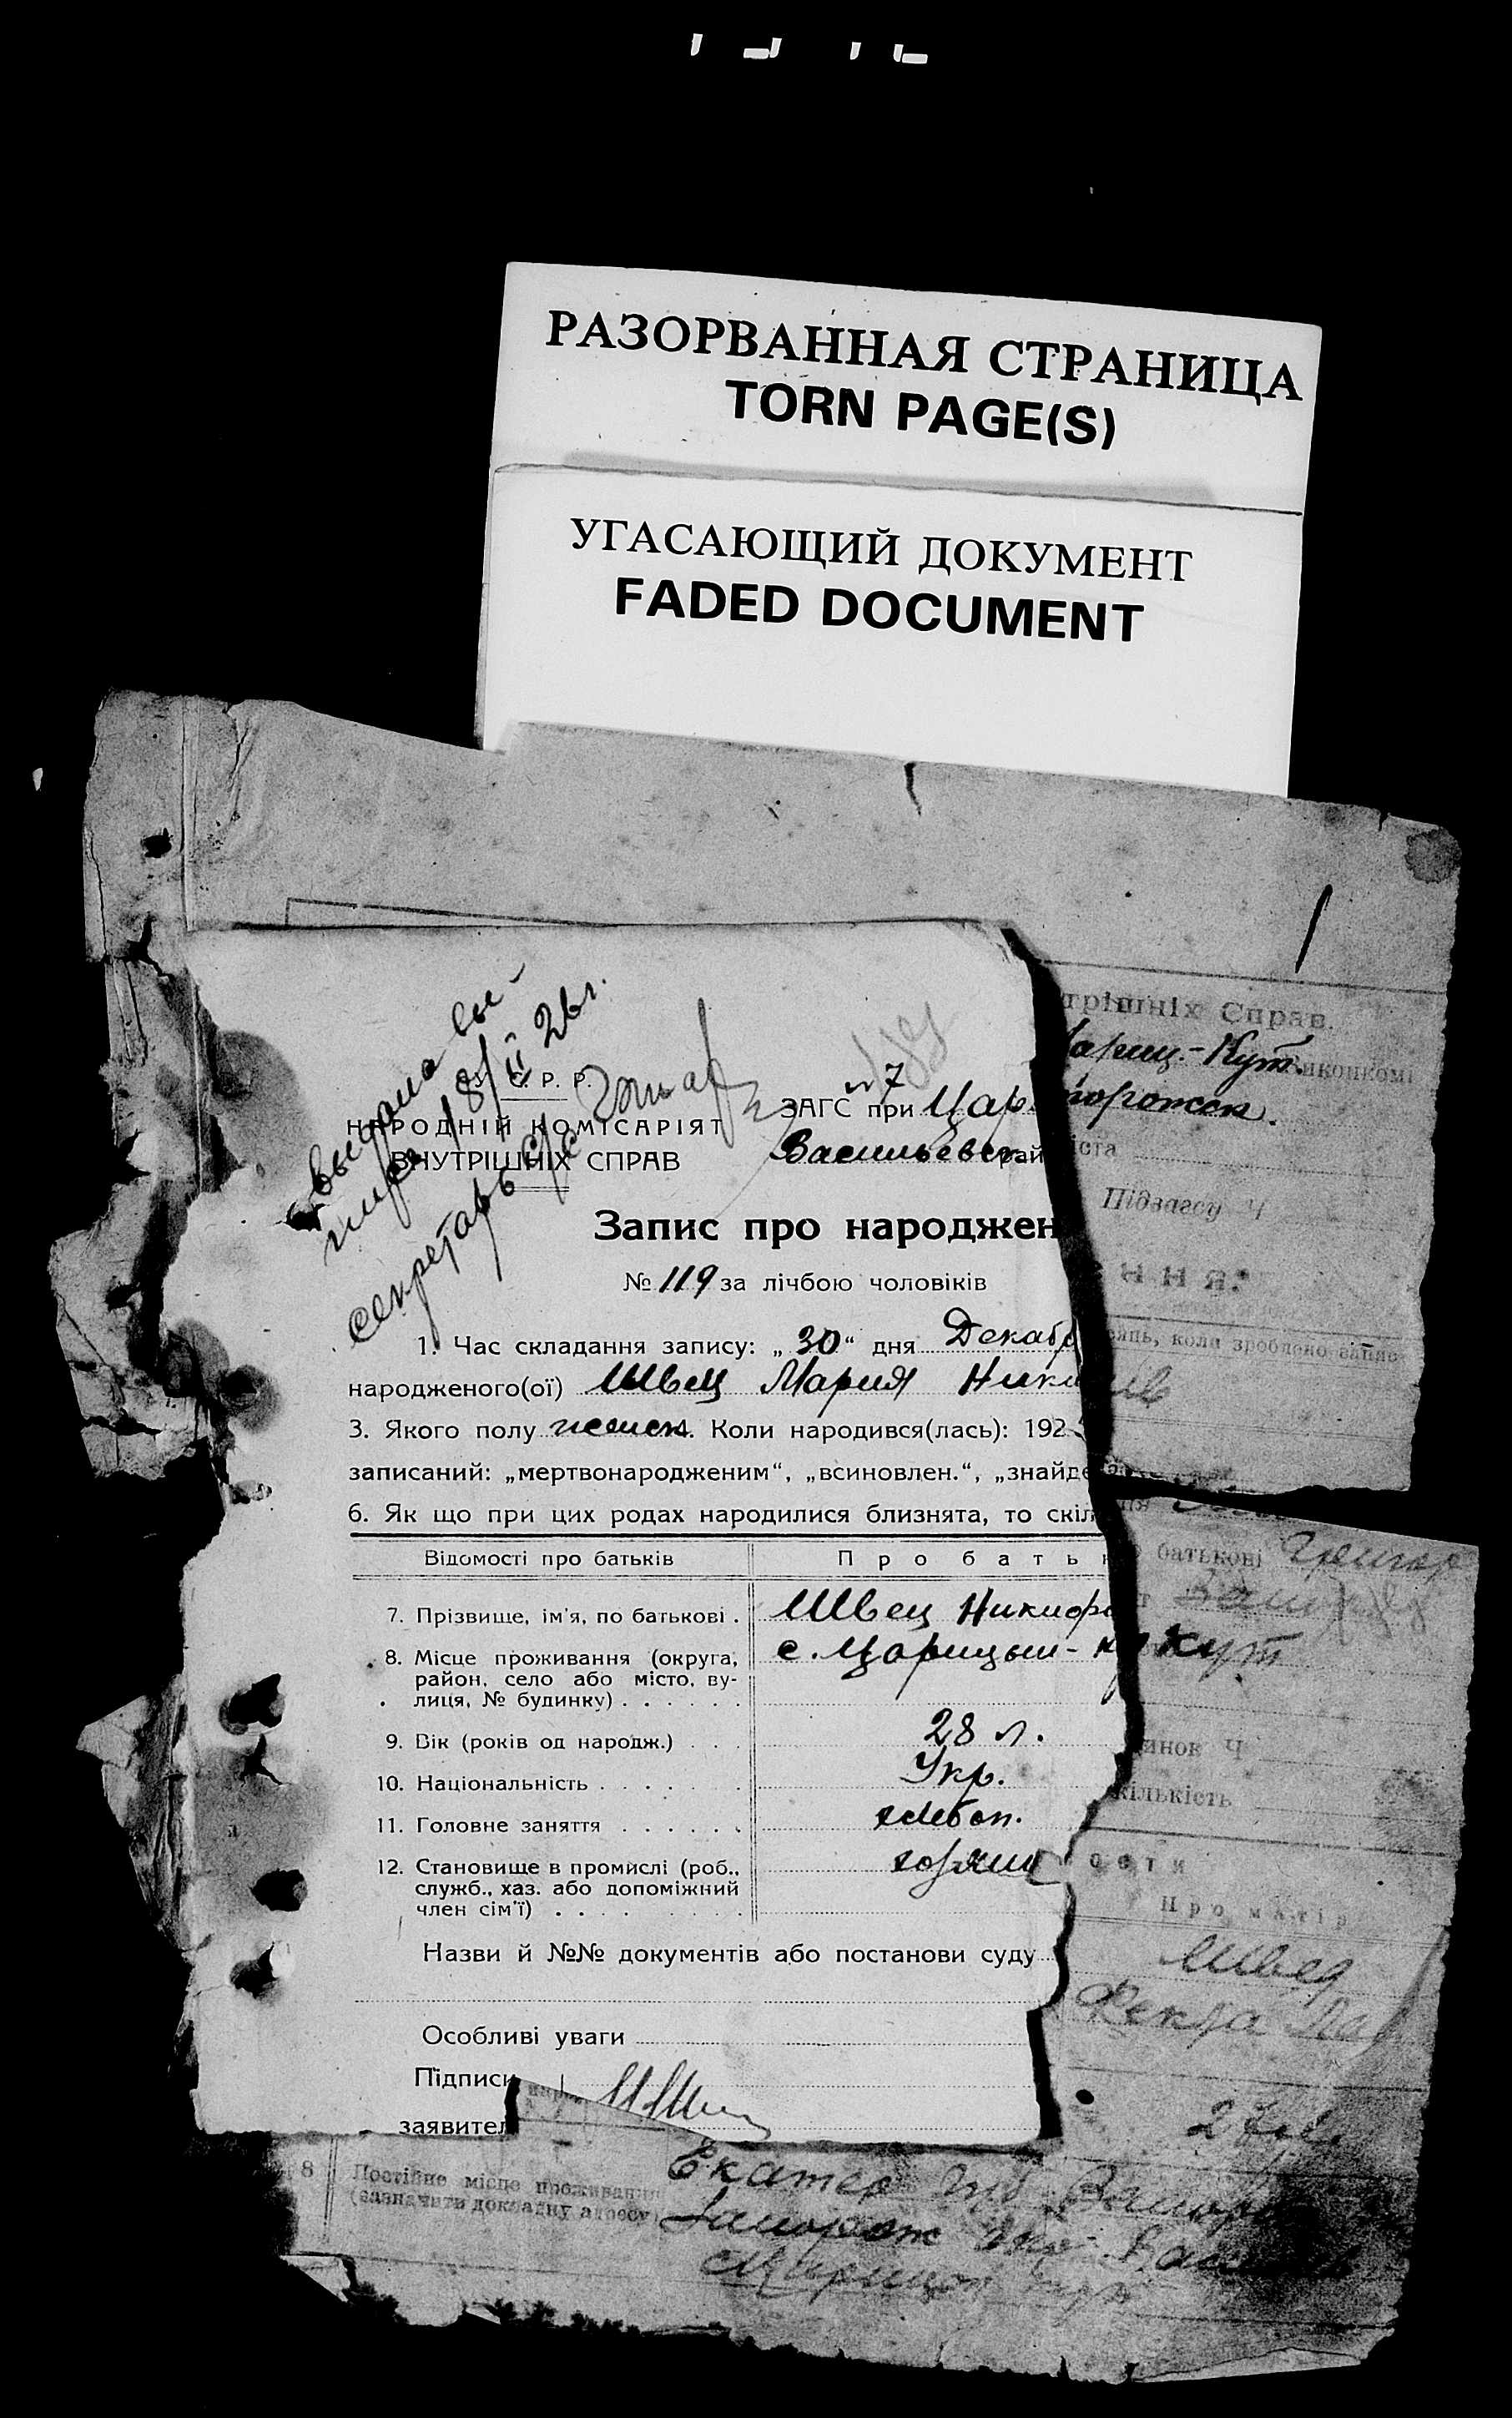 РАЗОРВАННАЯ СТРАНИЦА
TORN PAGE(S)
УГАСАЮЩИЙ ДОКУМЕНТ
FADED DOCUMENT
выдана вы-
пись 18/II 26 г.
секретарь с/с
У. С. Р. Р.
НАРОДНІЙ КОМІСАРІЯТ
ВНУТРІШНІХ СПРАВ
№7
ЗАГС при Цар.
Васильевск. рай
Запис про народжен
№ 119 за лічбою чоловіків
1. Час складання запису: „30“ дня Декабр
народженого(ої) Швец Мария Ники
3. Якого полу женск. 4. Коли народився(лась): 192
записаний: „мертвонародженим“, „всиновлен.“, „знайде
6. Як що при цих родах народилися близнята, то скіл
Відомості про батьків Про батьк
7. Прізвище, ім'я, по батькові . Швец Никифо
8. Місце проживання (округа, с. Царицын-
район, село або місто, ву-
лиця, № будинку) . . . . . .
9. Вік (років од народж.) . . . 28 л.
10. Національність . . . . . . Укр.
11. Головне заняття . . . . . . хлебоп.
12. Становище в промислі (роб., хозяин
служб., хаз. або допоміжний
член сім'ї) . . . . . . . . .
Назви й №№ документів або постанови суду
Особливі уваги
Підписи
заявител
трішніх Справ.
Цариц.-Кут. виконкомі
порожск.
іста
Підзагсу Ч
ння.
коли зроблено запис
батькові Григор
Кут
инок Ч
кількість
ости
Про матір
Швец
Фекла
27 л.
8 Постійне місце проживання Екатер. губ. Запорож
(зазначити докладну адресу) Запорож